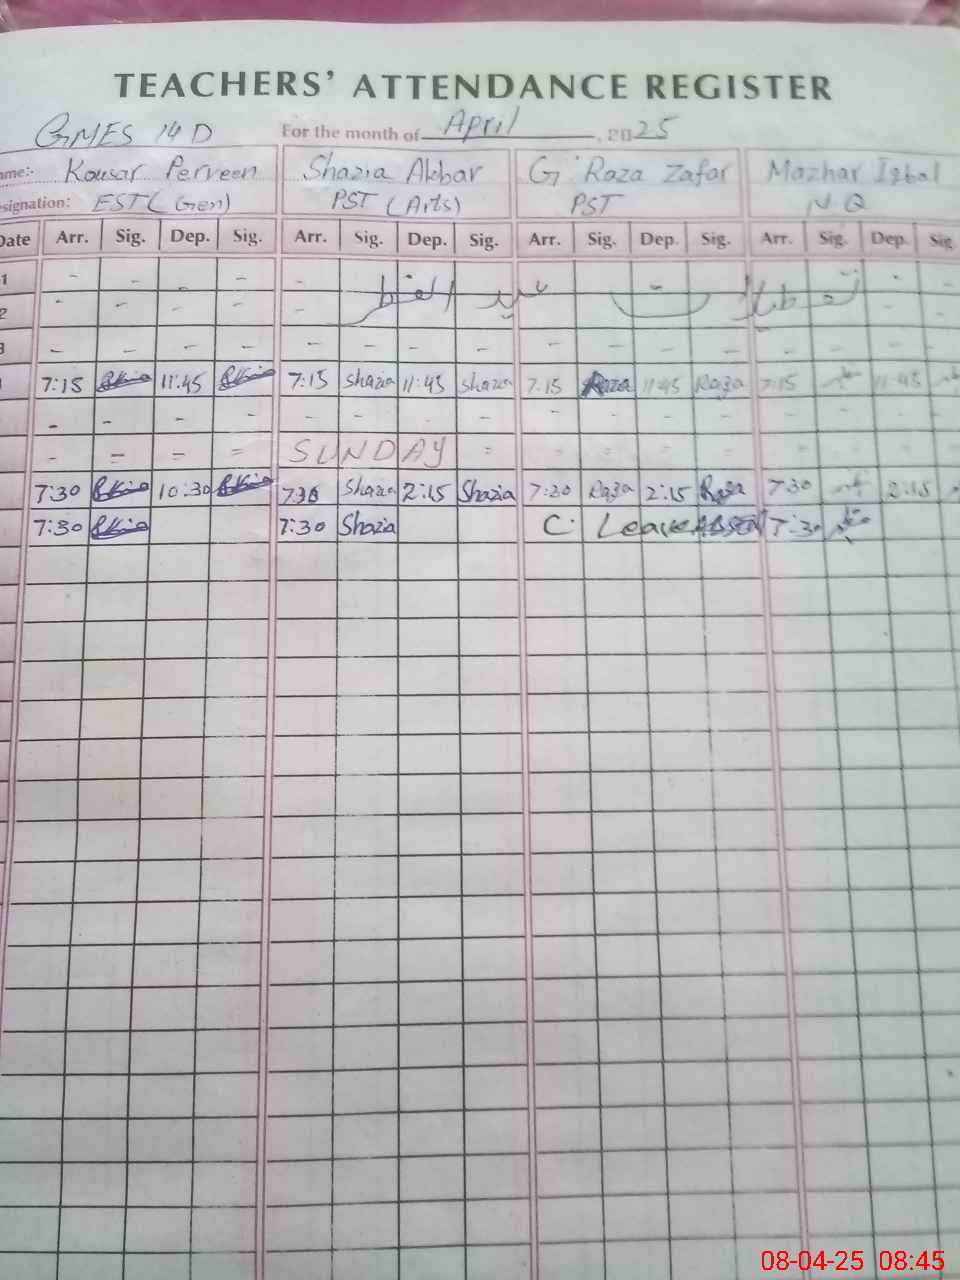 TEACHERS' ATTENDANCE REGISTER
GMES 14 D For the month of April, 2025
ame:- Kousar Perveen Shazia Akbar G. Raza Zafar Mazhar Iqbal
signation: EST (Gen) PST (Arts) PST N Q
Date Arr. Sig. Dep. Sig. Arr. Sig. Dep. Sig. Arr. Sig. Dep. Sig. Arr. Sig. Dep. Sig
1 - - - - - عید الفطر تعطیلات
2 - - - - -
3 - - - - - - - - - - - - - - -
7:15 11:45 7:15 Shazia 11:45 Shazia 7:15 Raza 11:45 Raza 7:15 11:45
- - - - - - - - - - - - - - -
- = = = SUNDAY = - = = = - = = =
7:30 10:30 7:30 Shazia 2:15 Shazia 7:30 Raza 2:15 Raza 7:30 2:15
7:30 7:30 Shazia C. Leave 7:30
08-04-25 08:45